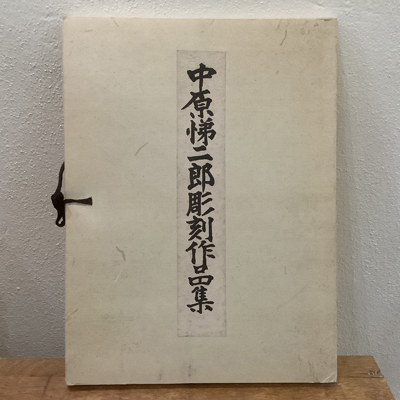 中原悌二郎彫刻作品集